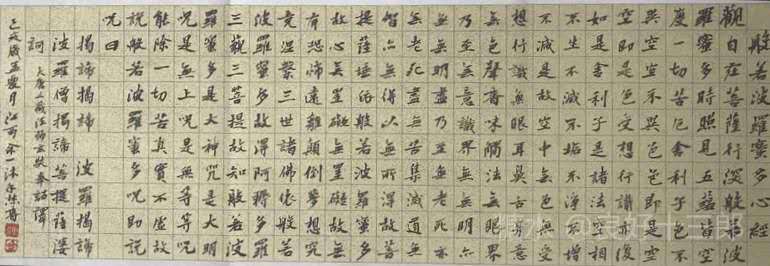 般若波羅蜜多心經
觀自在菩薩行深般若波
羅蜜多時照見五蘊皆空
度一切苦厄舍利子色不
異空空不異色色即是空
空即是色受想行識亦復
如是舍利子是諸法空相
不生不滅不垢不淨不增
不減是故空中無色無受
想行識無眼耳鼻舌身意
無色聲香味觸法無眼界
乃至無意識界無無明亦
無無明盡乃至無老死亦
無老死盡無苦集滅道無
智亦無得以無所得故菩
提薩埵依般若波羅蜜多
故心無罣礙無罣礙故無
有恐怖遠離顛倒夢想究
竟涅槃三世諸佛依般若
波羅蜜多故得阿耨多羅
三藐三菩提故知般若波
羅蜜多是大神咒是大明
咒是無上咒是無等等咒
能除一切苦真實不虛故
說般若波羅蜜多咒即說
咒曰
揭諦揭諦 波羅揭諦
波羅僧揭諦菩提薩婆
訶
大唐三藏法師玄奘奉詔譯
己亥歲孟夏月江西余一沐手